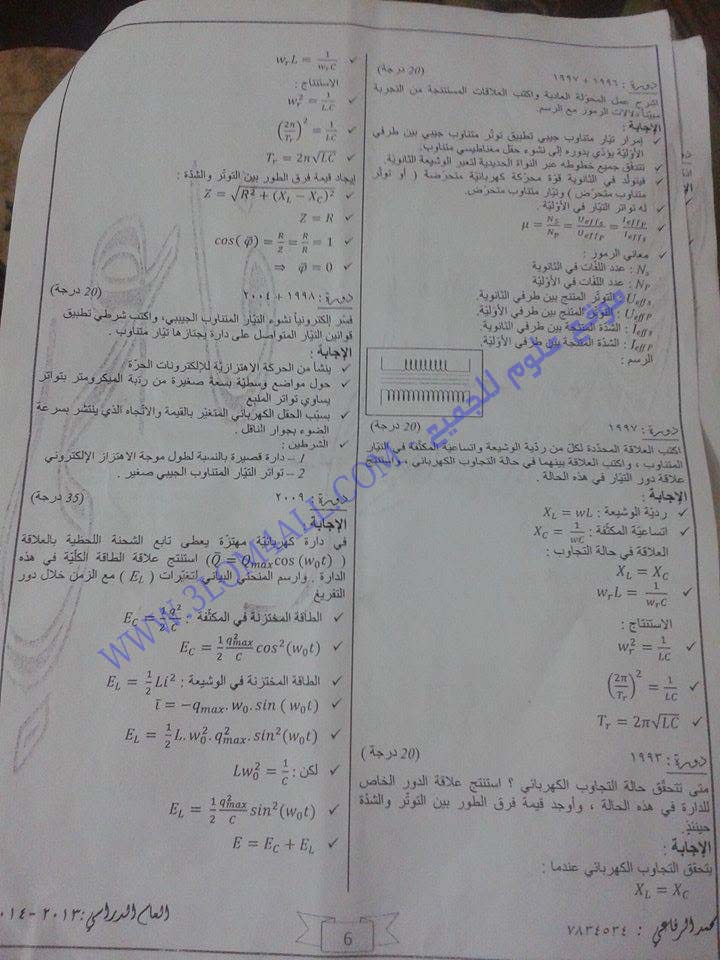 دورة : ١٩٩٦ + ١٩٩٧ (20 درجة)
اشرح عمل المحولة العادية واكتب العلاقات المستنتجة من التجربة
مبيّناً دلالات الرموز مع الرسم.
الإجابة :
✓ إمرار تيّار متناوب جيبي تطبيق توتّر متناوب جيبي بين طرفي
الأوّليّة يؤدي بدوره إلى نشوء حقل مغناطيسي متناوب.
✓ تتدفق جميع خطوطه عبر النواة الحديدية لتعبر الوشيعة الثانويّة.
✓ فيتولّد في الثانوية قوّة محرّكة كهربائيّة متحرّضة ( أو توتّر
متناوب متحرّض ) وتيّار متناوب متحرّض.
✓ له تواتر التيّار في الأوّليّة.
✓ μ = Ns/Np = Ueff s/Ueff P = Ieff P/Ieff s
✓ معاني الرموز :
Ns : عدد اللفّات في الثانوية
NP : عدد اللفّات في الأوّليّة
Ueff s : التوتّر المنتج بين طرفي الثانوية.
Ueff P : التوتّر المنتج بين طرفي الأوّليّة.
Ieff s : الشدّة المنتجة بين طرفي الثانوية.
Ieff P : الشدّة المنتجة بين طرفي الأوّليّة.
الرسم :
دورة : ١٩٩٧ (20 درجة)
اكتب العلاقة المحدّدة لكلّ من ردّية الوشيعة واتساعية المكثّفة في التيّار
المتناوب ، واكتب العلاقة بينهما في حالة التجاوب الكهربائي ، واستنتج
علاقة دور التيّار في هذه الحالة .
الإجابة :
✓ ردّية الوشيعة : XL = wL
✓ اتساعيّة المكثّفة : XC = 1/wC
العلاقة في حالة التجاوب :
XL = XC
✓ wrL = 1/wrC
الاستنتاج :
✓ wr² = 1/LC
✓ (2π/Tr)² = 1/LC
✓ Tr = 2π√LC
دورة : ١٩٩٣ (20 درجة )
متى تتحقّق حالة التجاوب الكهربائي ؟ استنتج علاقة الدور الخاص
للدارة في هذه الحالة ، وأوجد قيمة فرق الطور بين التوتّر والشدّة
حينئذٍ.
الإجابة :
يتحقق التجاوب الكهربائي عندما :
XL = XC
✓ wrL = 1/wrC
الاستنتاج :
✓ wr² = 1/L.C
✓ (2π/Tr)² = 1/L.C
✓ Tr = 2π√LC
إيجاد قيمة فرق الطور بين التوتّر والشدّة :
✓ Z = √R² + (XL − XC)²
✓ Z = R
✓ cos(φ̄) = R/Z = R/R = 1
✓ ⇒ φ̄ = 0
دورة : ١٩٩٨ + ٢٠٠٤ (20 درجة)
فسّر إلكترونياً نشوء التيّار المتناوب الجيبي، واكتب شرطي تطبيق
قوانين التيّار المتواصل على دارة يجتازها تيّار متناوب .
الإجابة :
✓ ينشأ من الحركة الاهتزازيّة للإلكترونات الحرّة
✓ حول مواضع وسطيّة بسعة صغيرة من رتبة الميكرومتر بتواتر
يساوي تواتر المنبع
✓ بسبب الحقل الكهربائي المتغيّر بالقيمة والاتجاه الذي ينتشر بسرعة
الضوء بجوار الناقل .
✓ الشرطين :
1 – دارة قصيرة بالنسبة لطول موجة الاهتزاز الإلكتروني
2 – تواتر التيّار المتناوب الجيبي صغير .
دورة : ٢٠٠٩ (35 درجة)
الإجابة
في دارة كهربائيّة مهتزّة يعطى تابع الشحنة اللحظية بالعلاقة
( Q̄ = Qmax cos (w0t) ) استنتج علاقة الطاقة الكلّيّة في هذه
الدارة . وارسم المنحني البياني لتغيّرات ( EL ) مع الزمن خلال دور
التفريغ
✓ الطاقة المختزنة في المكثّفة : EC = 1/2 q²/C
✓ EC = 1/2 q²max/C cos²(w0t)
✓ الطاقة المختزنة في الوشيعة : EL = 1/2 Li²
✓ ī = −qmax. w0. sin ( w0t)
✓ EL = 1/2 L. w0². q²max. sin²(w0t)
✓ لكن : Lw0² = 1/C
✓ EL = 1/2 q²max/C sin²(w0t)
✓ E = EC + EL
موقع علوم للجميع
WWW.3LOM4ALL.COM
محمد الرفاعي : ٧٨٣٤٥٣٤
6
العام الدراسي : ٢٠١٣ -